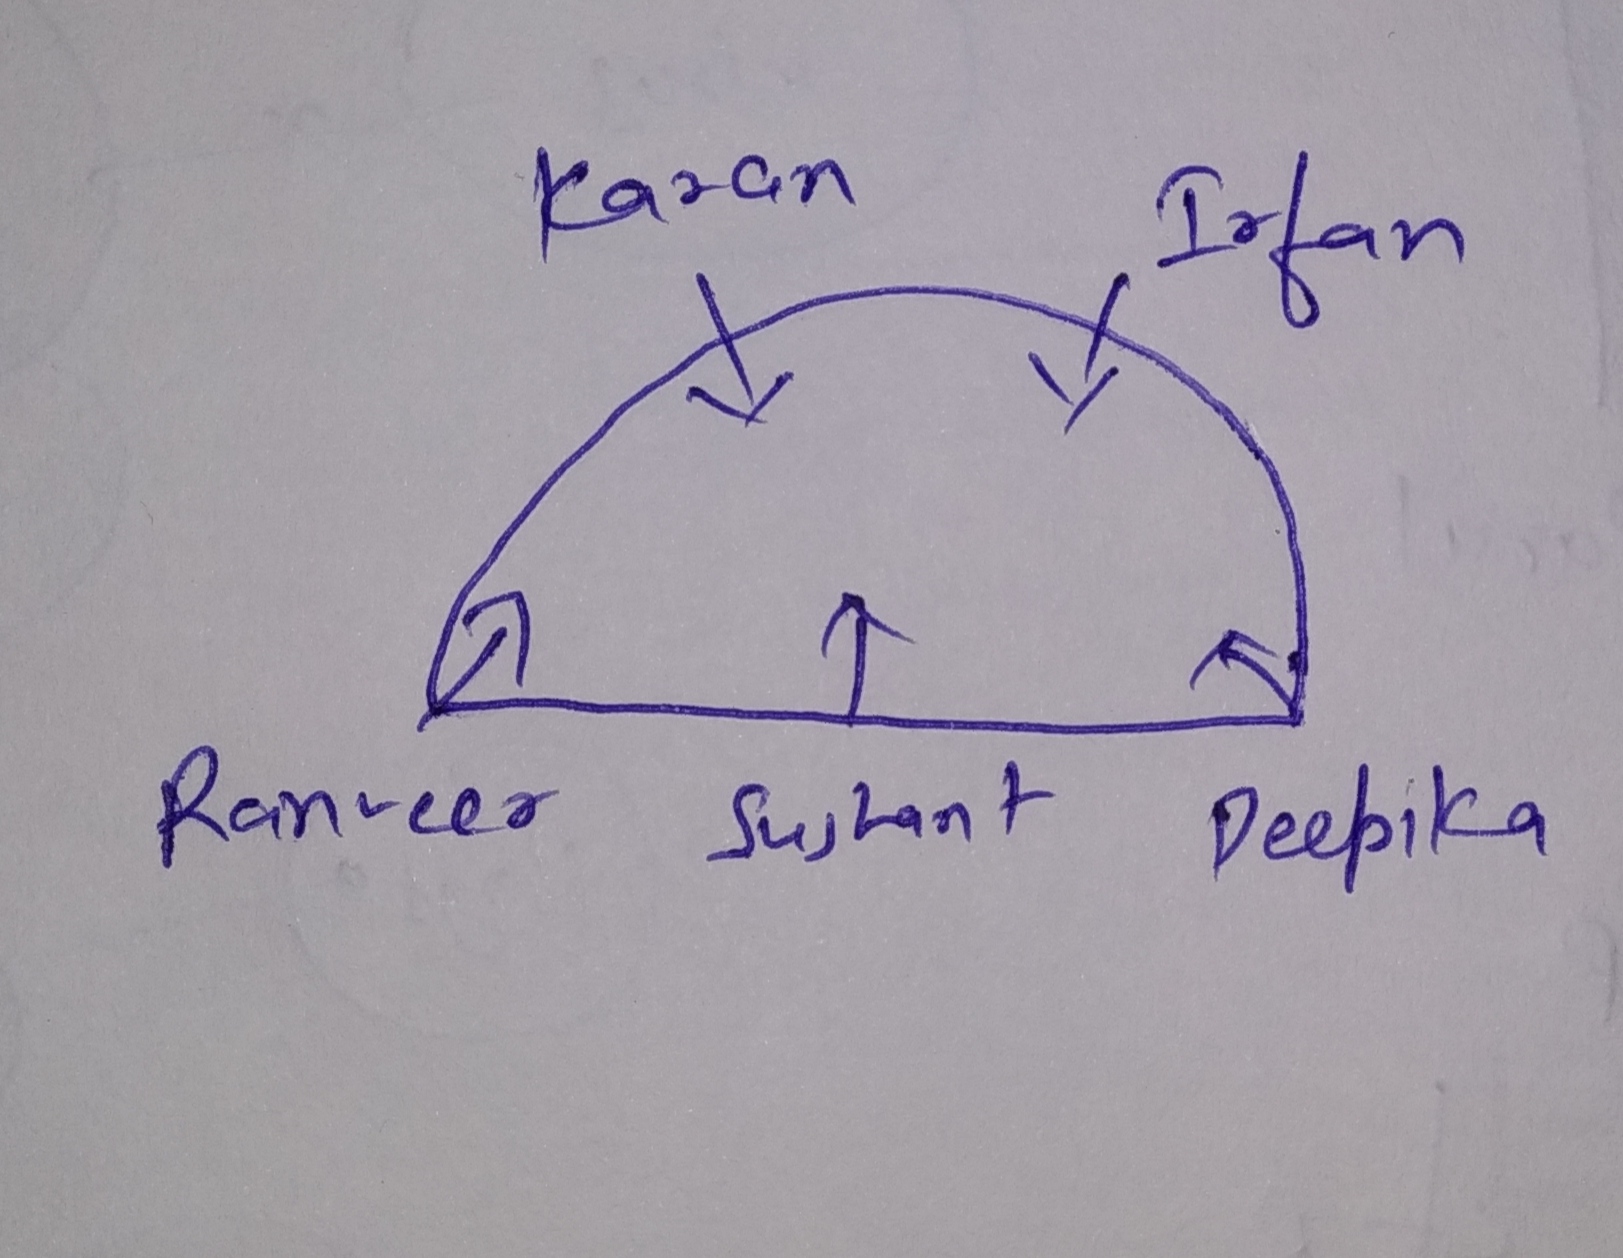 Karan Irfan
Ranveer Sushant Deepika